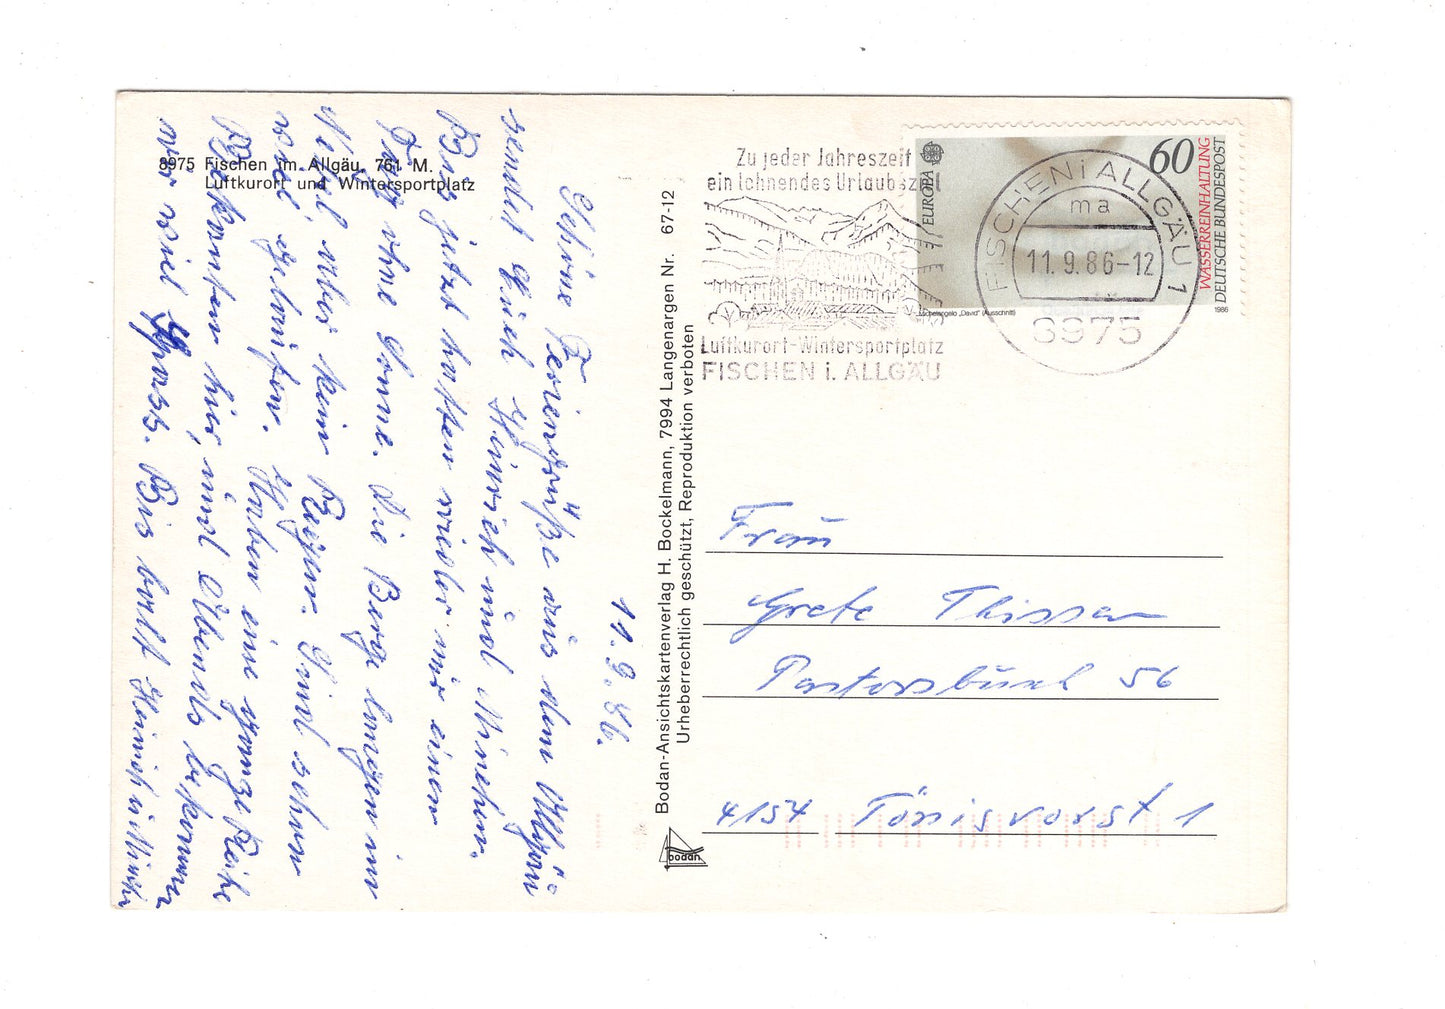 8975 Fischen im Allgäu, 761 M.
Luftkurort und Wintersportplatz
11.9.86.
Schöne Feriengrüße aus dem Allgäu
sendet Euch Heinrich und Minchen.
Bis jetzt hatten wieder nur einen
Tag ohne Sonne. Die Berge liegen im
Nebel, aber kein Regen. Sind schon
viel gelaufen. Haben eine ganze Reihe
Bekannten hier, und Abends bekommen
wir viel Spass. Bis bald Heinrich u. Minchen
Bodan-Ansichtskartenverlag H. Bockelmann, 7994 Langenargen Nr. 67-12
Urheberrechtlich geschützt, Reproduktion verboten
bodan
Zu jeder Jahreszeit
ein lohnendes Urlaubsziel
Luftkurort-Wintersportplatz
FISCHEN i. ALLGÄU
EUROPA
60
WASSERREINHALTUNG
DEUTSCHE BUNDESPOST
Michelangelo „David" (Ausschnitt)
1986
FISCHEN i ALLGÄU 1
ma
11.9.86-12
8975
Frau
Grete Thissen
Pastorsbusch 56
4154 Tönisvorst 1